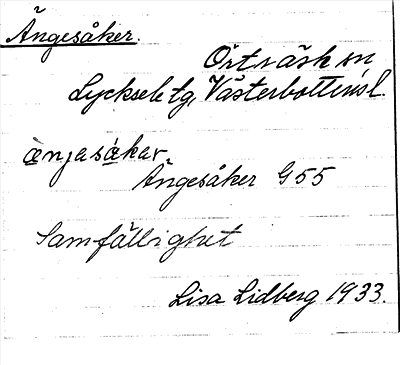 Ängesåker.
Örträsk sn
Lycksele tg, Västerbottens l.
ænjasåkar
Ängesåker G55
Samfällighet
Lisa Lidberg 1933.